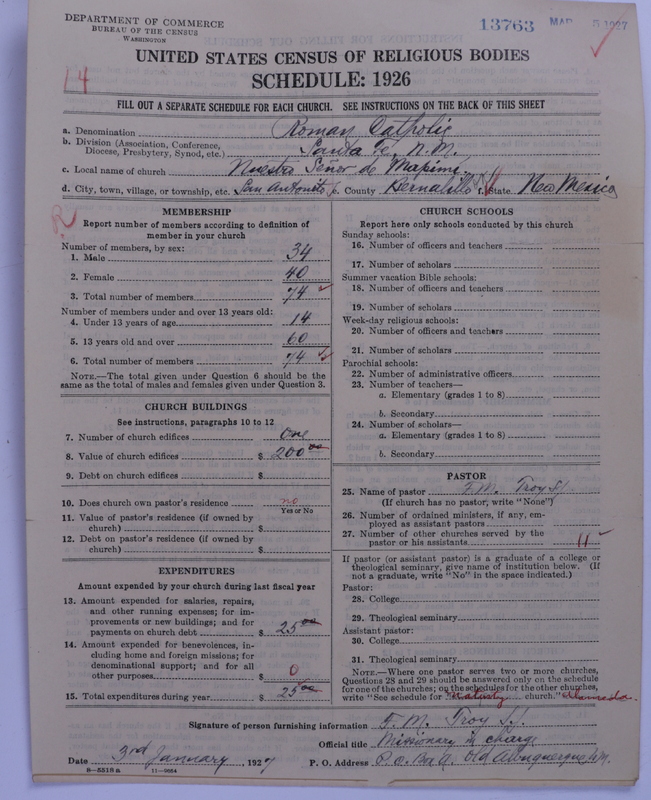 DEPARTMENT OF COMMERCE
BUREAU OF THE CENSUS
WASHINGTON
13763 MAR 5 1927
UNITED STATES CENSUS OF RELIGIOUS BODIES
SCHEDULE: 1926
14
FILL OUT A SEPARATE SCHEDULE FOR EACH CHURCH. SEE INSTRUCTIONS ON THE BACK OF THIS SHEET
a. Denomination Roman Catholic
b. Division (Association, Conference, Diocese, Presbytery, Synod, etc.) Santa Fe, N.M.
c. Local name of church Nuestro Señor de Mapimi
d. City, town, village, or township, etc. San Antonito e. County Bernalillo f. State New Mexico
R
MEMBERSHIP
Report number of members according to definition of
member in your church
Number of members, by sex:
1. Male 34
2. Female 40
3. Total number of members 74
Number of members under and over 13 years old:
4. Under 13 years of age 14
5. 13 years old and over 60
6. Total number of members 74
NOTE.—The total given under Question 6 should be
same as the total of males and females given under Question 3.
CHURCH BUILDINGS
See instructions, paragraphs 10 to 12
7. Number of church edifices one
8. Value of church edifices $ 200 00
9. Debt on church edifices $
10. Does church own pastor's residence no
Yes or No
11. Value of pastor's residence (if owned by
church) $
12. Debt on pastor's residence (if owned by
church) $
EXPENDITURES
Amount expended by your church during last fiscal year
13. Amount expended for salaries, repairs,
and other running expenses; for im-
provements or new buildings; and for
payments on church debt $ 25 00
14. Amount expended for benevolences, in-
cluding home and foreign missions; for
denominational support; and for all
other purposes $ 0
15. Total expenditures during year $ 25 00
CHURCH SCHOOLS
Report here only schools conducted by this church
Sunday schools:
16. Number of officers and teachers
17. Number of scholars
Summer vacation Bible schools:
18. Number of officers and teachers
19. Number of scholars
Week-day religious schools:
20. Number of officers and teachers
21. Number of scholars
Parochial schools:
22. Number of administrative officers
23. Number of teachers—
a. Elementary (grades 1 to 8)
b. Secondary
24. Number of scholars—
a. Elementary (grades 1 to 8)
b. Secondary
PASTOR
25. Name of pastor F.M. Troy SJ
(If church has no pastor, write "None")
26. Number of ordained ministers, if any, em-
ployed as assistant pastors
27. Number of other churches served by the
pastor or his assistants 11
If pastor (or assistant pastor) is a graduate of a college or
theological seminary, give name of institution below. (If
not a graduate, write "No" in the space indicated.)
Pastor:
28. College
29. Theological seminary
Assistant pastor:
30. College
31. Theological seminary
NOTE.—Where one pastor serves two or more churches,
Questions 28 and 29 should be answered only on the schedule
for one of the churches; on the schedules for the other churches,
write "See schedule for Nativity church." Alameda.
Signature of person furnishing information F. M. Troy S.J.
Official title Missionary in charge
Date 3rd January, 1927 P. O. Address P.O. Box A. Old Albuquerque N.M.
8—5518 a 11—9664